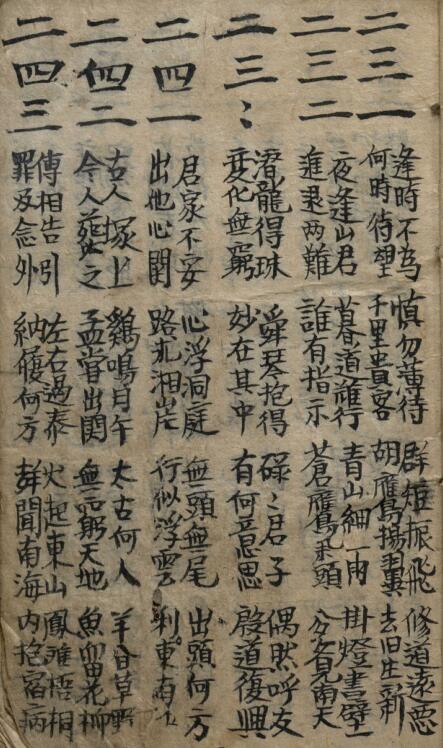 二三一
逢時不為 慎勿薄待 群雉振飛 修道遠惡
何時待望 千里貴客 胡雁揚翼 去旧生新
二三二
夜逢山君 暮道難行 青山細雨 掛燈書壁
進退両難 誰有指示 蒼鴈頭 見南天
二三〻
潛龍得珠 舜琴抱得 碌〻君子 偶然呼友
變化無窮 妙在其中 有何意思 殷道復興
二四一
君家不安 心浮洞庭 無頭無尾 出頭何方
出他心閑 路北湘岸 行似浮雲 利東南
二四二
古人塚上 鷄鳴日午 太古何人 羊甘草野
今人葬之 孟嘗出関 無窮天地 魚花柳
二四三
傳相告引 左右過泰 火起東山 鳳雛梧桐
罪及念外 納履何方 聲聞南海 內抱宿病